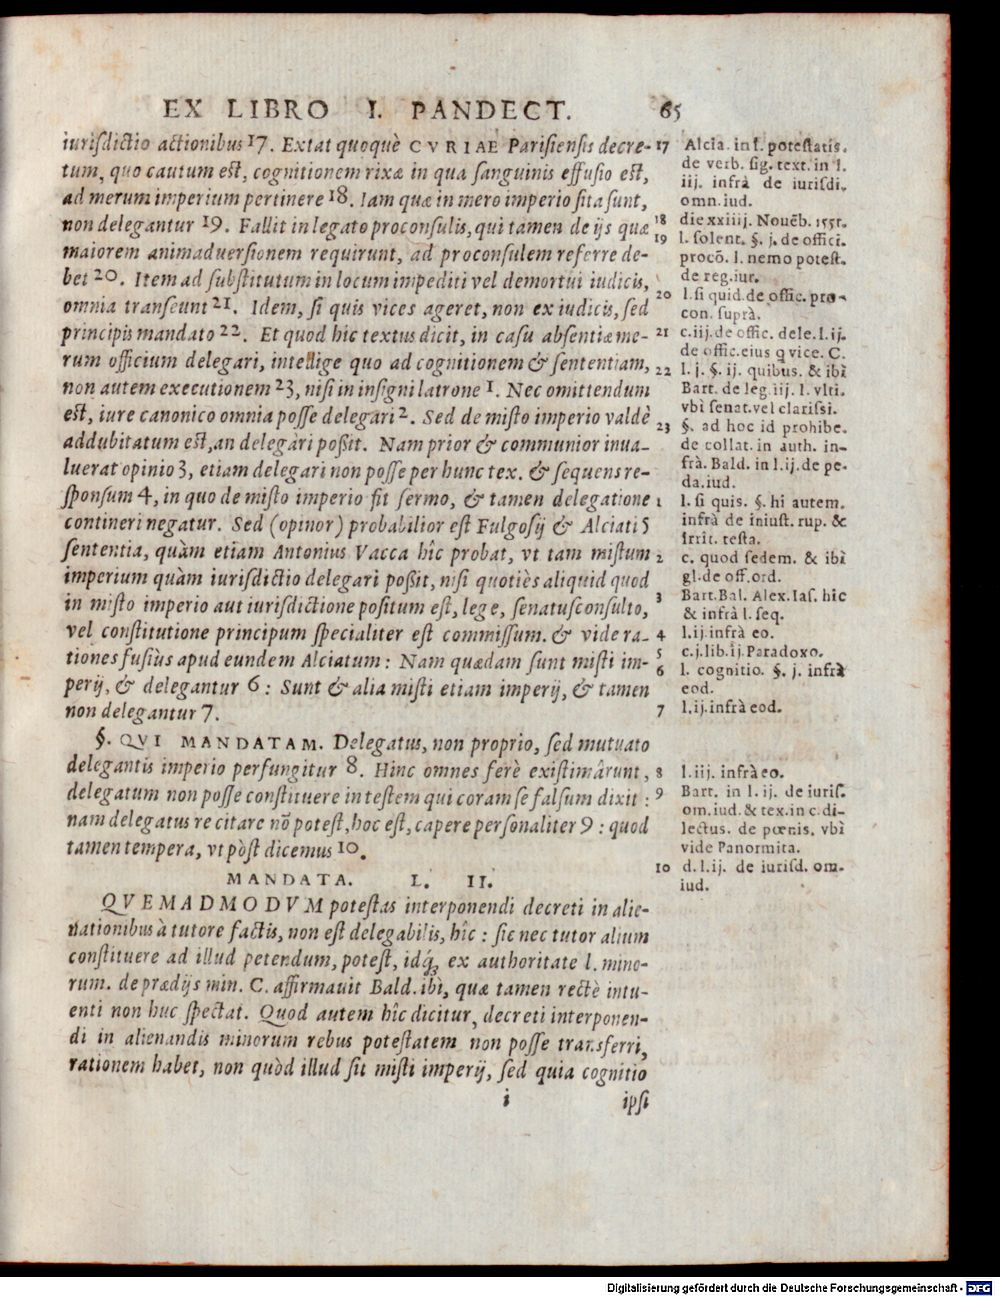 EX LIBRO I. PANDECT. 65
iurisdictio actionibus 17. Extat quoquè CVRIAE Parisiensis decre-
tum, quo cautum est, cognitionem rixæ in qua sanguinis effusio est,
ad merum imperium pertinere 18. Iam quæ in mero imperio sita sunt,
non delegantur 19. Fallit in legato proconsulis, qui tamen de ijs quæ
maiorem animaduersionem requirunt, ad proconsulem referre de-
bet 20. Item ad substitutum in locum impediti vel demortui iudicis,
omnia transeunt 21. Idem, si quis vices ageret, non ex iudicis, sed
principis mandato 22. Et quod hic textus dicit, in casu absentiæ me-
rum officium delegari, intellige quo ad cognitionem & sententiam,
non autem executionem 23, nisi in insigni latrone 1. Nec omittendum
est, iure canonico omnia posse delegari 2. Sed de misto imperio valdè
addubitatum est, an delegari poßit. Nam prior & communior inua-
luerat opinio 3, etiam delegari non posse per hunc tex. & sequens re-
sponsum 4, in quo de misto imperio fit sermo, & tamen delegatione
contineri negatur. Sed (opinor) probabilior est Fulgosij & Alciati 5
sententia, quàm etiam Antonius Vacca hîc probat, vt tam mistum
imperium quàm iurisdictio delegari poßit, nisi quotiès aliquid quod
in misto imperio aut iurisdictione positum est, lege, senatusconsulto,
vel constitutione principum specialiter est commissum. & vide ra-
tiones fusiùs apud eundem Alciatum: Nam quædam sunt misti im-
perij, & delegantur 6: Sunt & alia misti etiam imperij, & tamen
non delegantur 7.
§. QVI MANDATAM. Delegatus, non proprio, sed mutuato
delegantis imperio perfungitur 8. Hinc omnes ferè existimârunt,
delegatum non posse constituere in testem qui coram se falsum dixit:
nam delegatus recitare nõ potest, hoc est, capere personaliter 9: quod
tamen tempera, vt pòst dicemus 10.
MANDATA. L. II.
QVEMADMODVM potestas interponendi decreti in alie-
nationibus à tutore factis, non est delegabilis, hîc: sic nec tutor alium
constituere ad illud petendum, potest, idq́; ex authoritate l. mino-
rum. de prædijs min. C. affirmauit Bald. ibì, quæ tamen rectè intu-
enti non huc spectat. Quod autem hîc dicitur, decreti interponen-
di in alienandis minorum rebus potestatem non posse transferri,
rationem habet, non quòd illud sit misti imperij, sed quia cognitio
i ipsi
17 Alcia. in l. potestatis.
de verb. sig. text. in l.
iij. infrà de iurisdi.
omn. iud.
18 die xxiiij. Nouẽb. 1551.
19 l. solent. §. j. de offici.
procõ. l. nemo potest.
de reg. iur.
20 l. si quid. de offic. pro-
con. suprà.
21 c. iij. de offic. dele. l. ij.
de offic. eius q vice. C.
22 l. j. §. ij. quibus. & ibì
Bart. de leg. iij. l. vlti.
vbì senat. vel clarissi.
23 §. ad hoc id prohibe.
de collat. in auth. in-
frà. Bald. in l. ij. de pe-
da. iud.
1 l. si quis. §. hi autem.
infrà de iniust. rup. &
irrit. testa.
2 c. quod sedem. & ibì
gl. de off. ord.
3 Bart. Bal. Alex. Ias. hîc
& infrà l. seq.
4 l. ij. infrà eo.
5 c. j. lib. ij. Paradoxo.
6 l. cognitio. §. j. infrà
eod.
7 l. ij. infrà eod.
8 l. iij. infrà eo.
9 Bart. in l. ij. de iuris.
om. iud. & tex. in c. di-
lectus. de pœnis. vbì
vide Panormita.
10 d. l. ij. de iurisd. om.
iud.
Digitalisierung gefördert durch die Deutsche Forschungsgemeinschaft - DFG